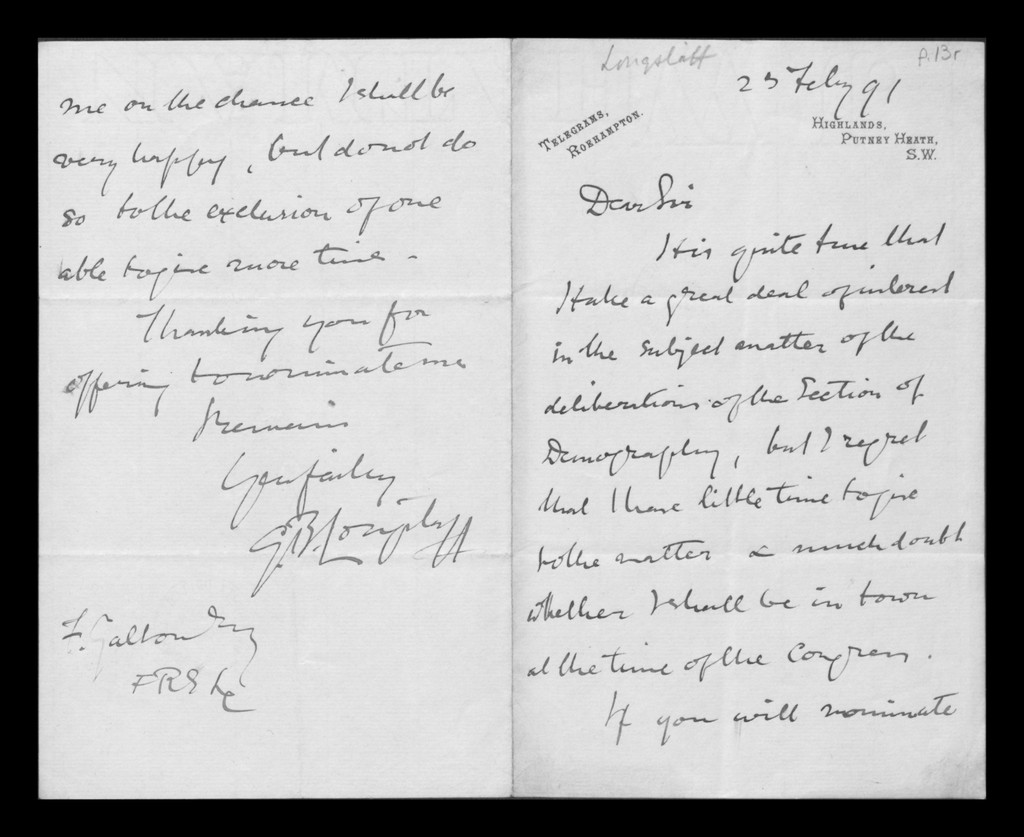 Longstaff
p.13r
TELEGRAMS,
ROEHAMPTON.
25 Feby 91
HIGHLANDS,
PUTNEY HEATH,
S.W.
Dear Sir
It is quite true that
I take a great deal of interest
in the subject matter of the
deliberations of the Section of
Demography, but I regret
that I have little time to give
to the matter & much doubt
whether I shall be in town
at the time of the Congress.
If you will nominate
me on the chance I shall be
very happy, but do not do
so to the exclusion of one
able to give more time.
Thanking you for
offering to nominate me
I remain
Yours faithfully
G.B. Longstaff
F. Galton Esq
FRS &c